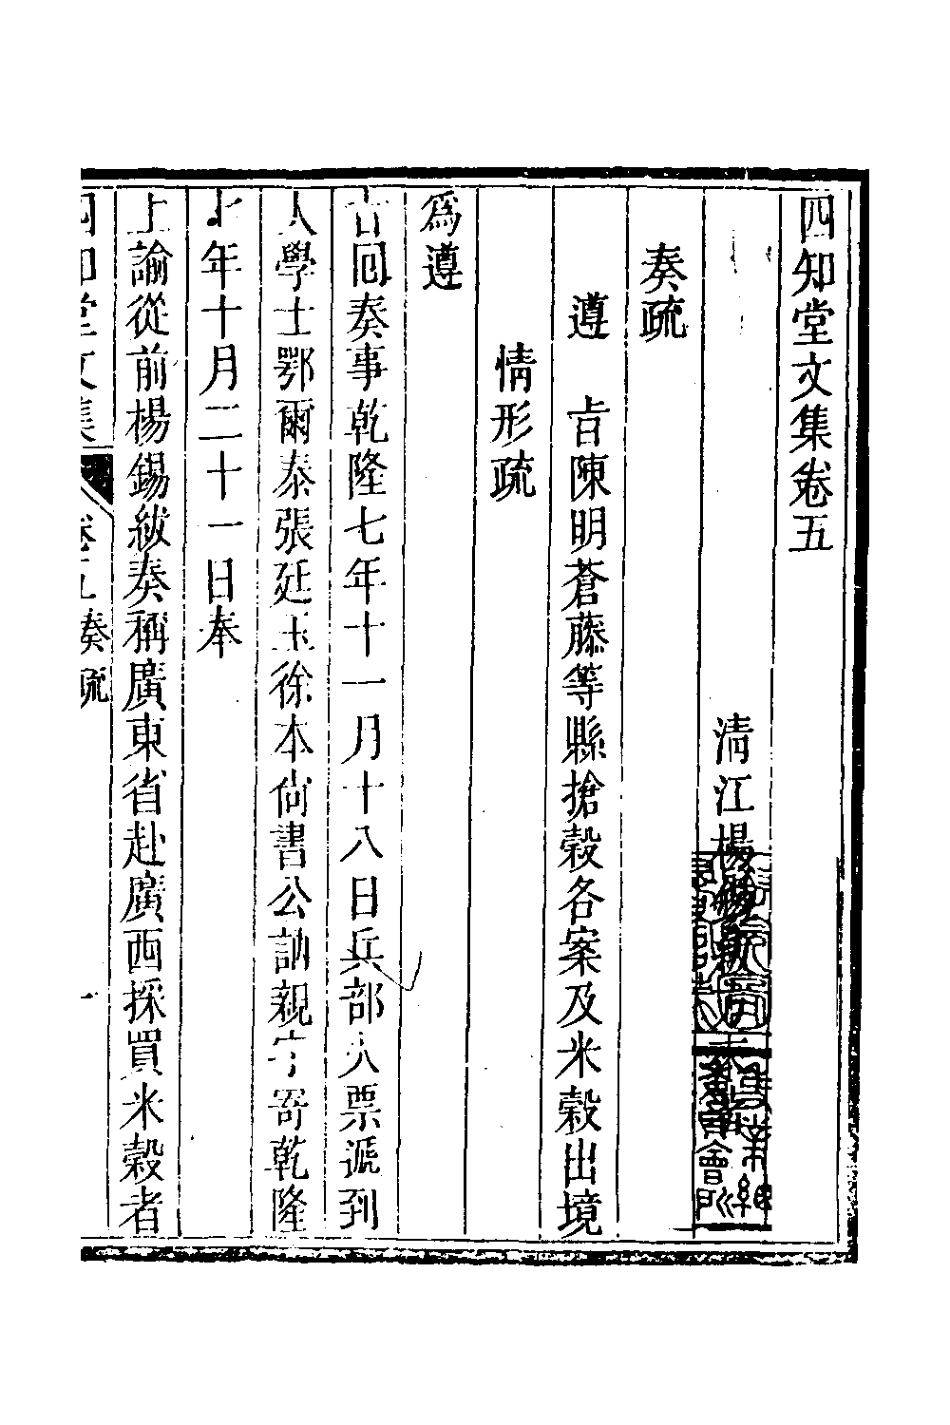 四知堂文集卷五
清江楊錫紱
奏疏
遵　旨陳明蒼藤等縣搶穀各案及米穀出境
情形疏
爲遵
旨回奏事乾隆七年十一月十八日兵部火票遞到
大學士鄂爾泰張廷玉徐本尚書公訥親字寄乾隆
七年十月二十一日奉
上諭從前楊錫紱奏稱廣東省赴廣西採買米穀者
四知堂文集　卷五奏疏　一